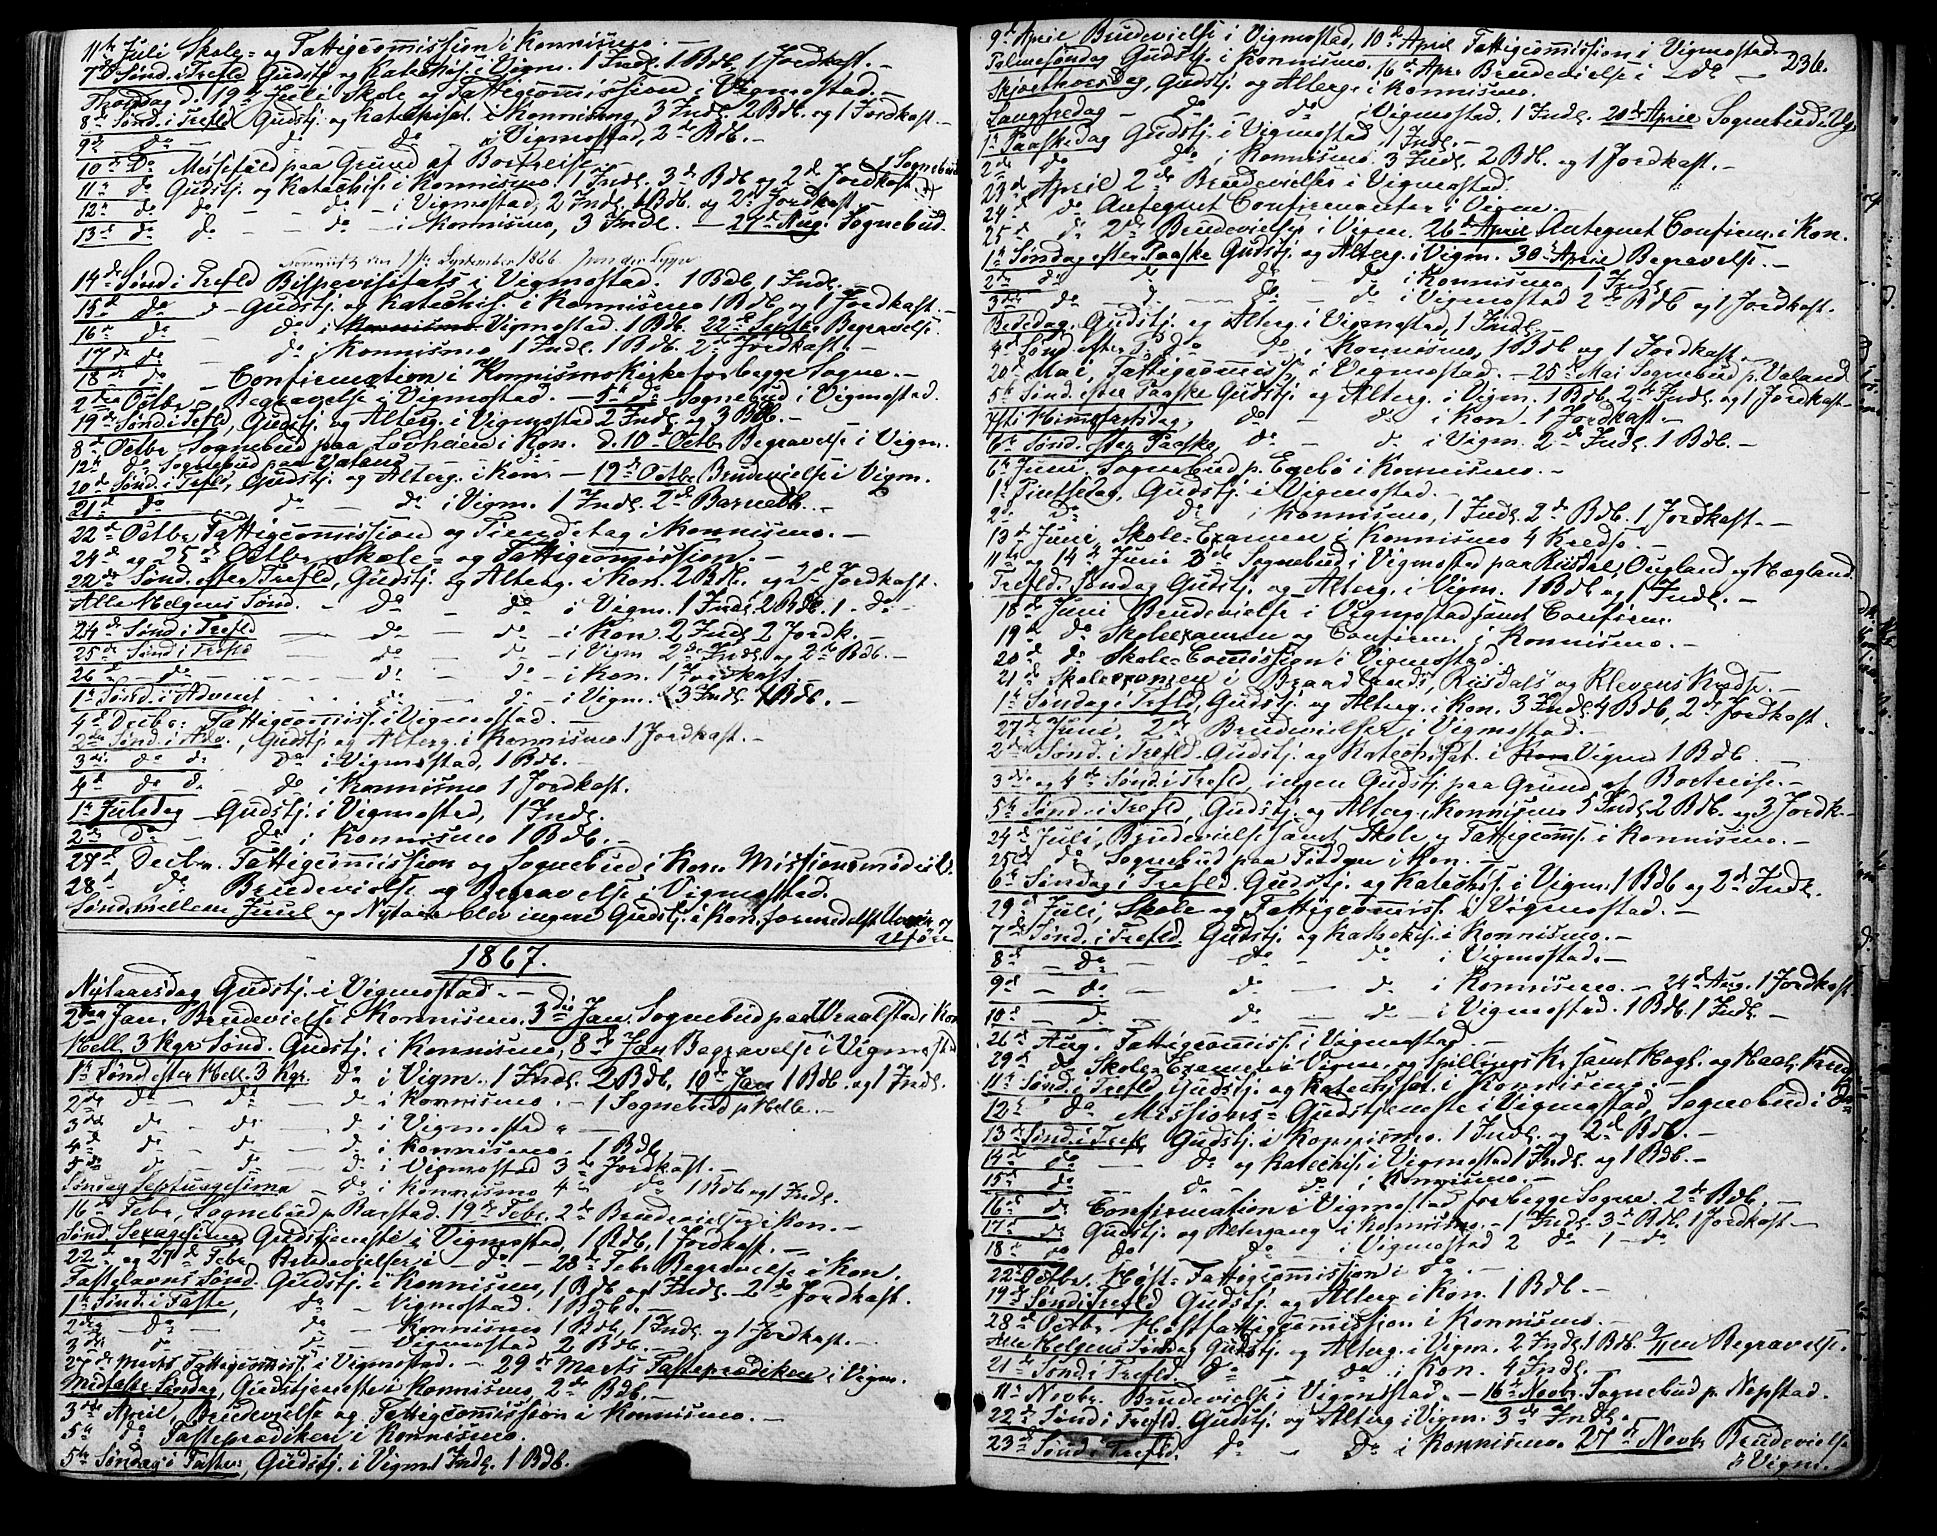 11te Juli Skole- og Fattigcomission i Konnismo.
7de Sønd. i Trefld Gudstj. og Katechis. i Vigm. 1 Indl. 1 Bdb. 1 Jordkast. -
Thorsdag d. 19de Juli Skole og Fattigcomission i Vigmostad. -
8de Sønd. i Trefld Gudstj. og Katechisat. i Konnismo, 3 Indl. 2 Bdb. og 1 Jordkast. -
9de - do - do do i Vigmostad, 2de Bdb. -
10de Do Messefald paa Grund af Bortreise.
11te do Gudstj. og Katechis. i Konnismo. 1 Indl. 3de Bdb og 2de Jordkast. 1 Sognebud
12te do do - - do - i Vigmostad, 2 Indl. Bdb. og 2de Jordkast. -
13de do do - - do - i Konnismo, 3 Indl. - 27de Aug. Sognebud.
den 1ste September 1866.
14de Sønd i Trefld Bispevisitats i Vigmostad. 1 Bdb, 1 Indl. -
15de do - Gudstj. og Katechis. i Konnismo 1 Bdb. og 1 Jordkast. -
16de do - do i Konnismo Vigmostad. 1 Bdb. 22de Septbr Begravelse.
17de do - do i Konnismo 1 Indl. 1 Bdb. 2de Jordkast. -
18de do - Confirmation i Konnismo Kirke for begge Sogne. -
2den Octbr. Begravelse i Vigmostad. - 5te do Sognebud i Vigmostad.
19de Sønd. i Trefld, Gudstj. og Alterg. i Vigmostad 2 Indl. og 3 Bdb. -
8de Octbr. Sognebud paa i Kon. d. 10de Octbr Begravelse i Vigm.
12te do Sognebud paa
20de Sønd. i Trefld, Gudstj. og Alterg. i Kon. - 19de Octbr Brudevielse i Vigm.
21de - do - do - do i Vigm. 1 Indl. 2de Barnedb. -
22de Octbr, Fattigcomission og Tiendetag i Konnismo. -
24de og 25de Octbr Skole- og Fattigcomission. -
22de Sønd. efter Trefld, Gudstj. og Alterg. i Kon. 2 Bdb. og 2de Jordkast.
Alle Helgens Sønd. - do - do i Vigm. 1 Indl. 2 Bdb. 1 - do -
24de Sønd i Trefld - do - do - i Kon. 2 Indl. 2 Jordk. -
25de Sønd i Trefld - do - do - i Vigm 2de Indl. og 2de Bdb. -
26de do - do - do - i Kon. 1 Jordkast
1ste Sønd. i Advent - do - do - i Vigm. 3 Indl. 1 Bdb. -
4de Decbr. Fattigcomiss. i Vigmostad. -
2den Sønd. i Adv., Gudstj. og Alterg. i Konnismo. 1 Jordkast. -
3die do do do i Vigmostad, 1 Bdb. -
4de do do do i Konnismo 1 Jordkast.
1ste Juledag Gudstj. i Vigmostad, 1 Indl.
2den Do do i Konnismo 1 Bdb. -
27de Decbr. Fattigcomission og Sognebud i Kon. Missionsmøde i V.
28de do Brudevielse og Begravelse i Vigmostad.
Sønd. mellem Juul og Nytaar blev ingen Gudstj. i Kon. formedelst
1867.
Nytaarsdag Gudstj. i Vigmostad. -
2den Jan. Brudevielse i Konnismo. 3die Jan. Sognebud paa i Kon
Hell. 3 Kgrs Sønd. Gudstj. i Konnismo, 8de Jan Begravelse i Vigmostad
1ste Sønd efter Hell. 3 Kgr. do i Vigm. 1 Indl. 2 Bdb, 19de Jan 1 Bdb. og 1 Indl.
2den do - do - do i Konnismo. - 1 Sognebud p. Helle. -
3die do - do - do i Vigmostad -
4de do do do i Konnismo. 1 Bdb.
5te do do do i Vigmostad 3de Jordkast. -
Søndag Septuagesima - do i Konnismo 4 - do 1 Bdb og 1 Indl.
16de Febr, Sognebud p. 19de Febr. 2de Brudevielser i Kon. -
Sønd. Sexagesima, Gudstjeneste i Vigmostad, 1 Bdb, 1 Jordkast. -
22de og 27de Febr Brudevielser i - do - 28de Febr Begravelse i Kon.
Fastelavns Sønd. Gudstj. i Konnismo, 1 Bdb og 1 Indl. - 2de Jordkast.
1ste Sønd. i Faste, do - Vigmostad. 1 Bdb. -
2den - do - do - Konnismo 1 Bdb, 1 Indl. og 1 Jordkast. -
3die do do - Vigmostad 2 Bdb. -
27de Marts Fattigcomiss. i Vigmostad. - 29de Marts Fasteprædiken i Vigm.
Midfaste Søndag, Gudstjeneste i Konnismo, 2de Bdb. -
3die April Brudevielse og Fattigcomission i Konnismo. -
5te do Fasteprædiken i Konnismo.
5te Søndag i Faste, Gudstj. i Vigm. 1 Indl. 1 Bdb.
236.
9de April Brudevielse i Vigmostad, 10de April Fattigcomission i Vigmostad. -
Palmesøndag Gudstj. i Konnismo. 16de Apr. Brudevielse i - do -
Skjærthorsdag, Gudstj. og Alterg. i Konnismo.
Langfredag - do - do i Vigmostad, 1 Indl. 20de April Sognebud i Vigm
1ste Paaskedag Gudstj. i Vigmostad 1 Indl. -
2den do do i Konnismo 3 Indl. 2 Bdb. og 1 Jordkast. -
23de April 2de Brudevielser i Vigmostad.
24de do Antegnet Confirmanter i Vigm. -
25de do 2de Brudevielser i Vigm. 26de April Antegnet Confirm. i Kon.
1ste Søndag efter Paaske Gudstj. og Alterg. i Vigm. 30te April Begravelse. -
2den do do do - do i Konnismo, 1 Indl.
3die do do - do - do i Vigmostad 2de Bdb og 1 Jordkast.
Bededag, Gudstj. og Alterg. i Vigmostad, 1 Indl. -
4de Sønd efter P. do do i Konnismo, 1 Bdb og 1 Jordkast. -
20de Mai, Fattigcomiss. i Vigmostad. - 25de Mai Sognebud p. Valand
5te Sønd. efter Paaske Gudstj. og Alterg. i Vigm. 1 Bdb. 2de Indl. og 1 Jordkast. -
Xsti Himmelfartsdag, do - do i Kon. 1 Jordkast. -
6te Sønd. efter Paaske do - do i Vigm. 2de Indl. 1 Bdb. -
6te Juni. Sognebud p. Egebø i Konnismo. -
1ste Pintsedag, Gudstj. i Vigmostad. -
2den Do do i Konnismo, 1 Indl. 2de Bdb. 1 Jordkast. -
13de Juni, Skole-Examen i Konnismo 4 Kredse. -
11te og 14de Juni 3de Sognebud i Vigmostad paa Riisdal, Ougland og Høgland.
Trefld. Søndag Gudstj. og Alterg. i Vigm. 1 Bdb og 1 Indl. -
18de Juni Brudevielse i Vigmostad samt Confirm.
19de do Skoleexamen og Confirm. i Konnismo. -
20de do Skole-Comission i Vigmostad
21de Skoleexamen i Braadlands, Riisdals og Klevens Kredse. -
1ste Søndag i Trefld, Gudstj. og Alterg. i Kon. 3 Indl. 4 Bdb, 2de Jordkast.
27de Juni, 2de Brudevielser i Vigmostad. -
2den Sønd. i Trefld. Gudstj. og Katechisat. i Kon Vigm 1 Bdb.
3die og 4de Sønd. i Trefld, ingen Gudstj. paa Grund af Bortreise. -
5te Sønd. i Trefld, Gudstj. og Alterg. i Konnismo 5 Indl. 2 Bdb. og 3 Jordk. -
24de Juli, Brudevielse samt Skole og Fattigcoms. i Konnismo. -
25de do Sognebud paa i Kon. -
6te Søndag i Trefld. Gudstj. og Katechis. i Vigm. 1 Bdb og 2de Indl.
29de Juli, Skole og Fattigcomiss. i Vigmostad. -
7de Sønd. i Trefld. Gudstj. og Katechis. i Konnismo. -
8de - do - do - do i Vigmostad. -
9de - do - do - do i Konnismo. - 24de Aug. 1 Jordkast.
10de - do - do - do i Vigmostad. 1 Bdb. 1 Indl. -
26de Aug. Fattigcomiss. i Vigmostad. -
29de do Skole-Examen i Vigm. og Spillings Kr. samt Høgl. og Kreds
11te Sønd. i Trefld Gudstj. og Katechisat. i Konnismo. -
12te do Missions-Gudstjeneste i Vigmostad, Sognebud i do
13de Sønd i Trefl. Gudstj. i Konnismo. 1 Indl. og 2de Bdb. -
14de do - - do og Katechis. i Vigmostad 1 Indl. og 1 Bdb. -
15de do - do do i Konnismo.
16de do Confirmation i Vigmostad for begge Sogne. 2de Bdb. -
17de do Gudstj. og Altergang i Konnismo. - 1 Indl. 3de Bdb. 1 Jordkast -
18de do do do - i Vigmostad 2 do 1 - do -
22de Octbr. Høst-Fattigcomission i do -
19de Sønd. i Trefld Gudstj. og Alterg. i Kon. 1 Bdb. -
28de Octbr Høstfattigcomission i Konnismo.
Alle Helgens Søndag Gudstj. og Alterg. i Vigm. 2 Indl. 1 Bdb. Begravelse.
21de Sønd i Trefld. do - do i Kon. 4 Indl. -
11te Novbr. Brudevielse i Vigmostad. - 16de Novbr. Sognebud p. Nøpstad.
22de Sønd i Trefld. Gudstj. og Alterg. i Vigm. 3de Indl.
23de Sønd i Trefld. do - Do i Konnismo. 27de Novbr Brudevielse
i Vigm.